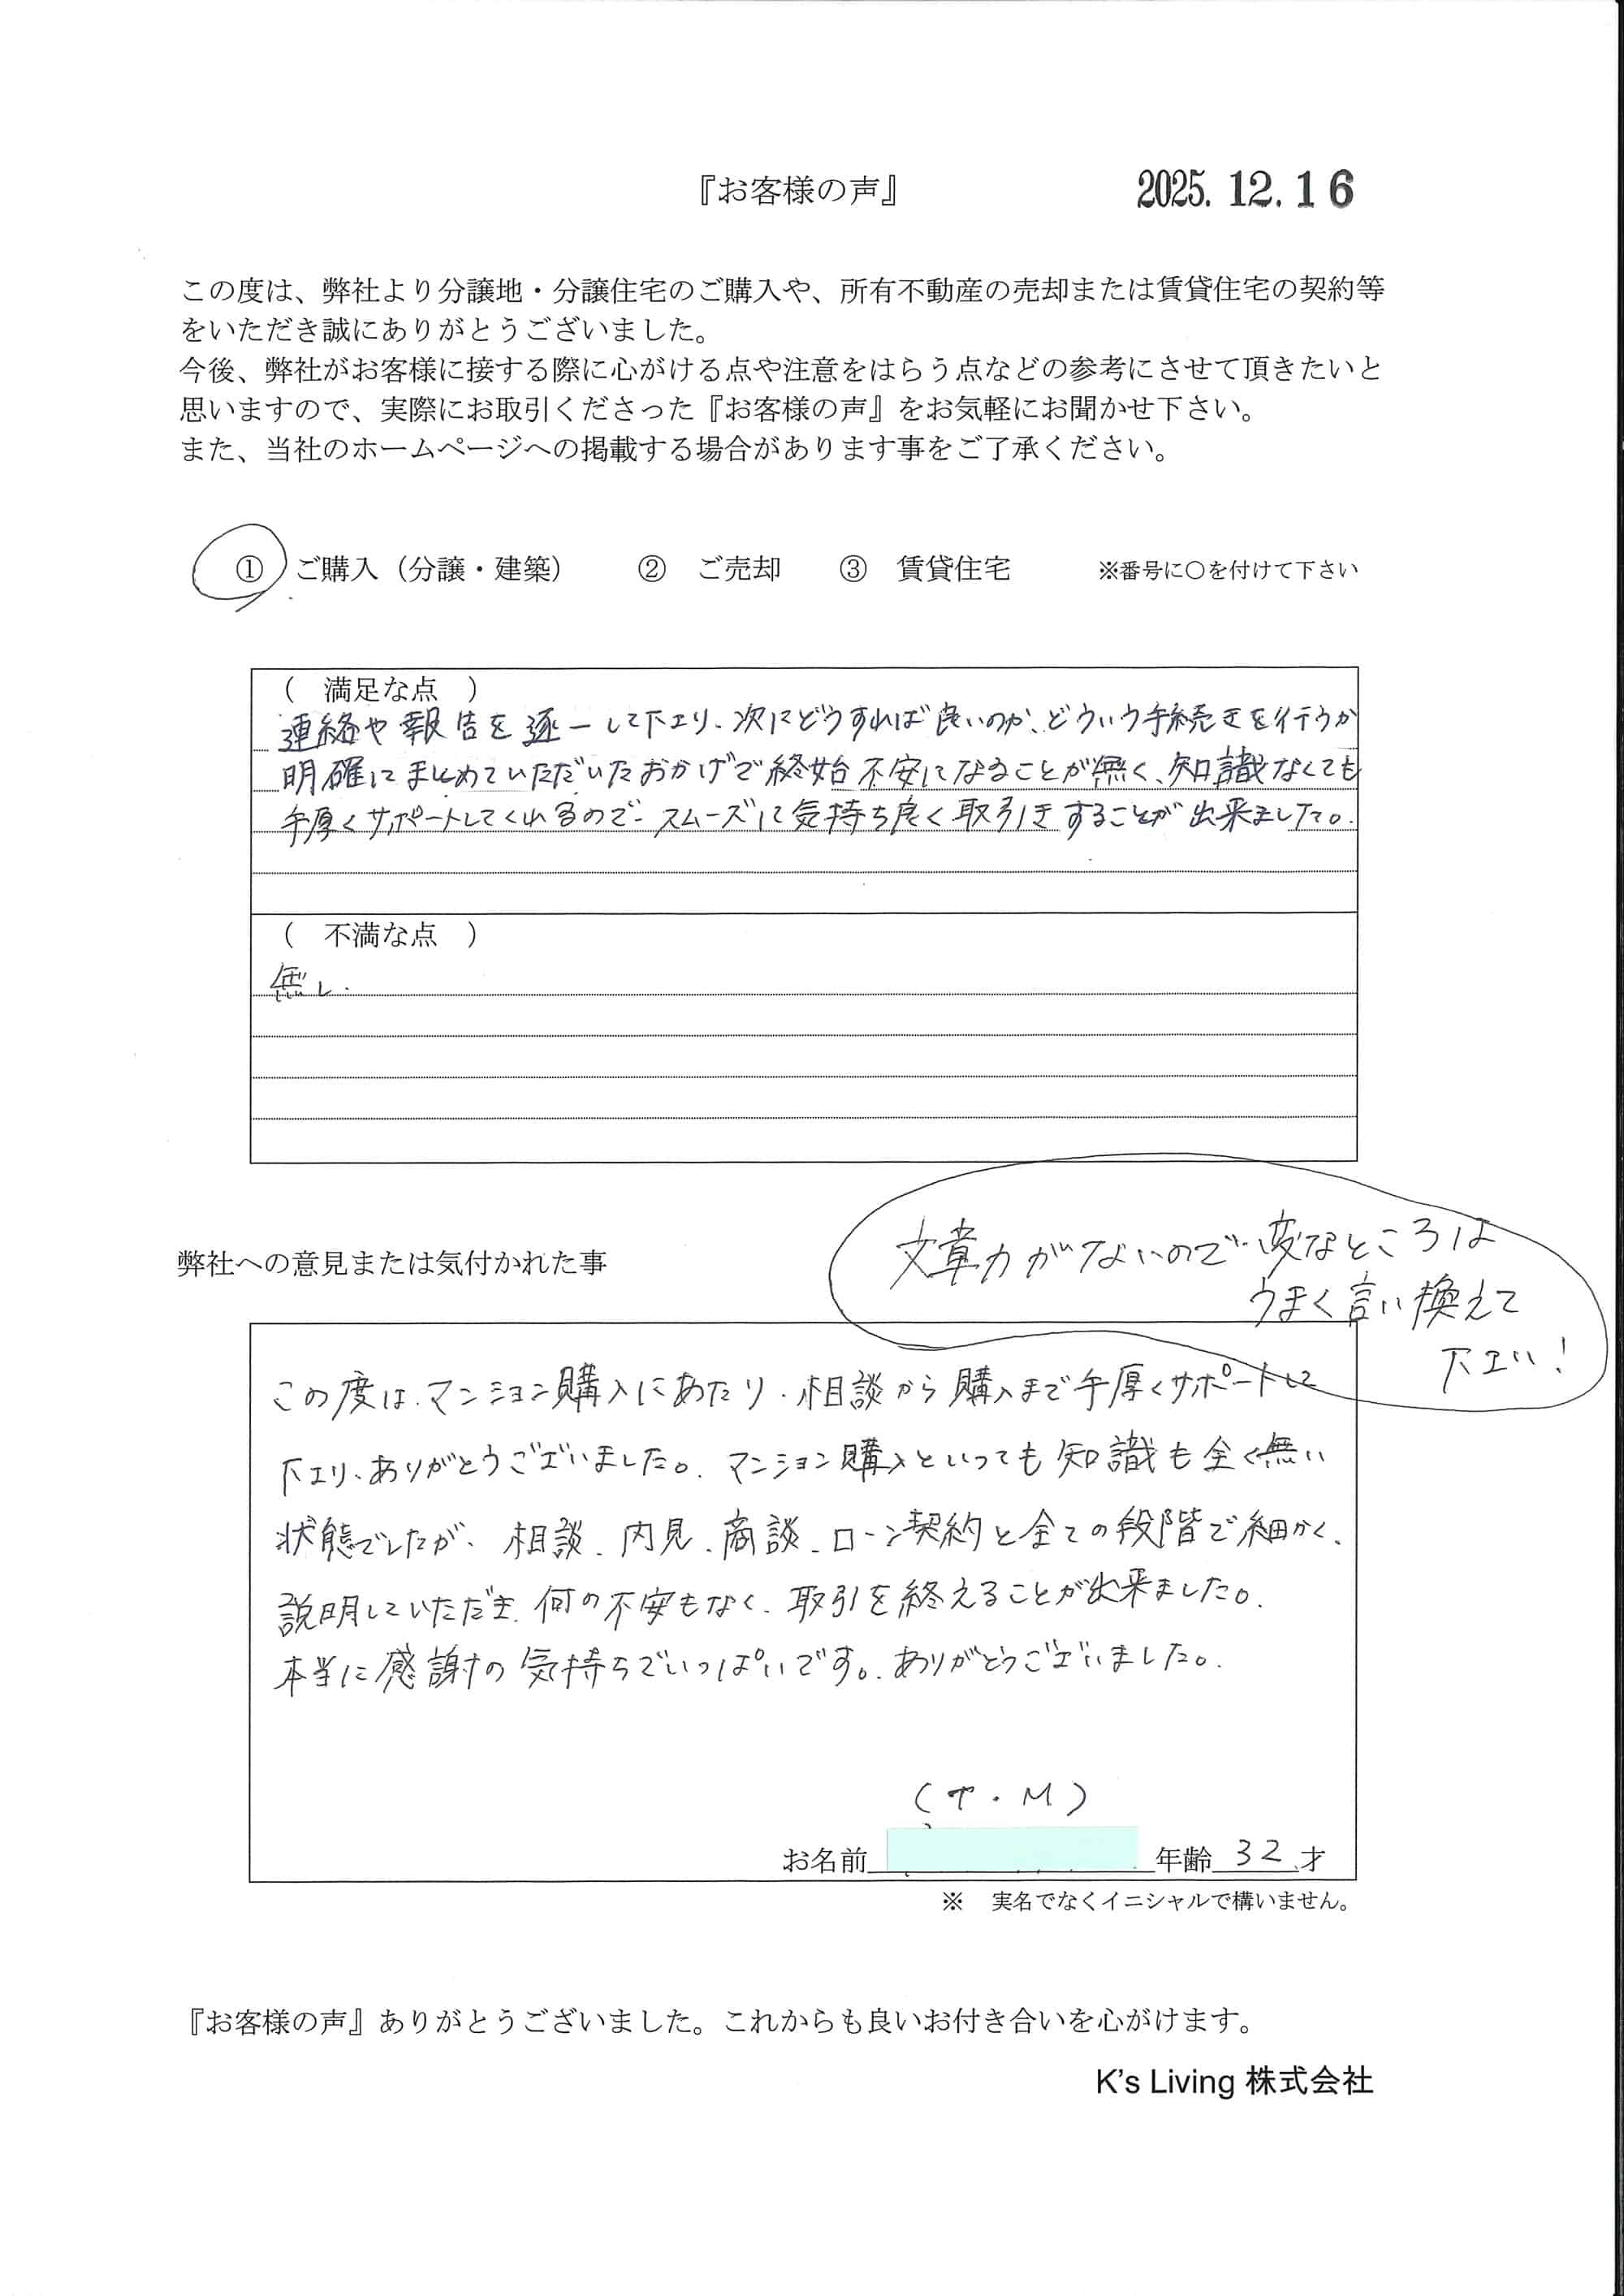 『お客様の声』 2025.12.16
この度は、弊社より分譲地・分譲住宅のご購入や、所有不動産の売却または賃貸住宅の契約等
をいただき誠にありがとうございました。
今後、弊社がお客様に接する際に心がける点や注意をはらう点などの参考にさせて頂きたいと
思いますので、実際にお取引くださった『お客様の声』をお気軽にお聞かせ下さい。
また、当社のホームページへの掲載する場合があります事をご了承ください。
① ご購入（分譲・建築） ② ご売却 ③ 賃貸住宅 ※番号に〇を付けて下さい
（ 満足な点 ）
連絡や報告を逐一して下さり、次にどうすれば良いのか、どういう手続きを行うか
明確にまとめていただいたおかげで終始不安になることが無く、知識なくても
手厚くサポートしてくれるので、スムーズに気持ち良く取引きすることが出来ました。
（ 不満な点 ）
無し.
文章力がないので変なところは
うまく言い換えて
下さい!
弊社への意見または気付かれた事
この度は、マンション購入にあたり、相談から購入まで手厚くサポートして
下さり、ありがとうございました。マンション購入といっても知識も全く無い
状態でしたが、相談、内見、商談、ローン契約と全ての段階で細かく、
説明していただき、何の不安もなく、取引を終えることが出来ました。
本当に感謝の気持ちでいっぱいです。ありがとうございました。
(T.M)
お名前 年齢 32 才
※ 実名でなくイニシャルで構いません。
『お客様の声』ありがとうございました。これからも良いお付き合いを心がけます。
K's Living 株式会社